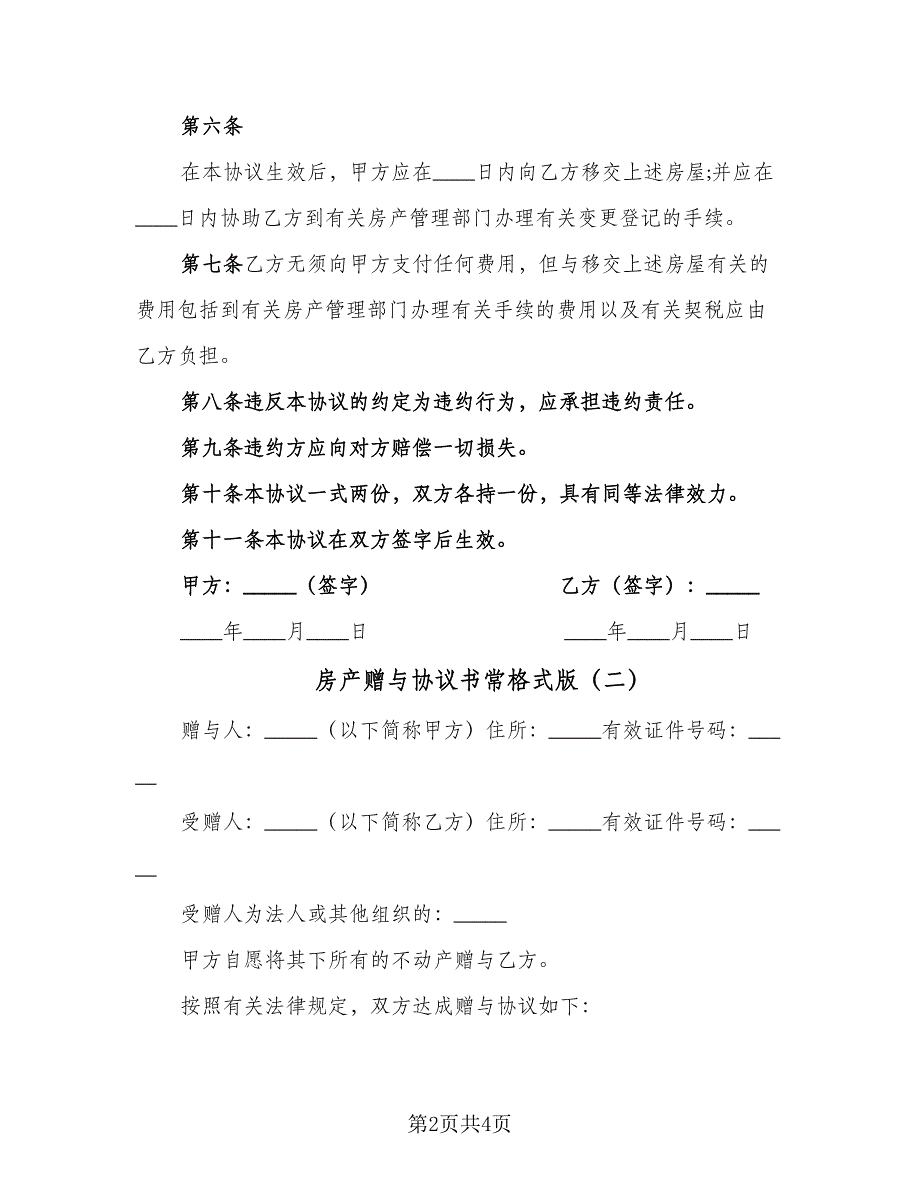 第六条
在本协议生效后，甲方应在____日内向乙方移交上述房屋;并应在
____日内协助乙方到有关房产管理部门办理有关变更登记的手续。
第七条乙方无须向甲方支付任何费用，但与移交上述房屋有关的
费用包括到有关房产管理部门办理有关手续的费用以及有关契税应由
乙方负担。
第八条违反本协议的约定为违约行为，应承担违约责任。
第九条违约方应向对方赔偿一切损失。
第十条本协议一式两份，双方各持一份，具有同等法律效力。
第十一条本协议在双方签字后生效。
甲方：_____（签字） 乙方（签字）：_____
____年____月____日 ____年____月____日
房产赠与协议书常格式版（二）
赠与人：_____（以下简称甲方）住所：_____有效证件号码：___
__
受赠人：_____（以下简称乙方）住所：_____有效证件号码：___
__
受赠人为法人或其他组织的：_____
甲方自愿将其下所有的不动产赠与乙方。
按照有关法律规定，双方达成赠与协议如下：
第2页共4页